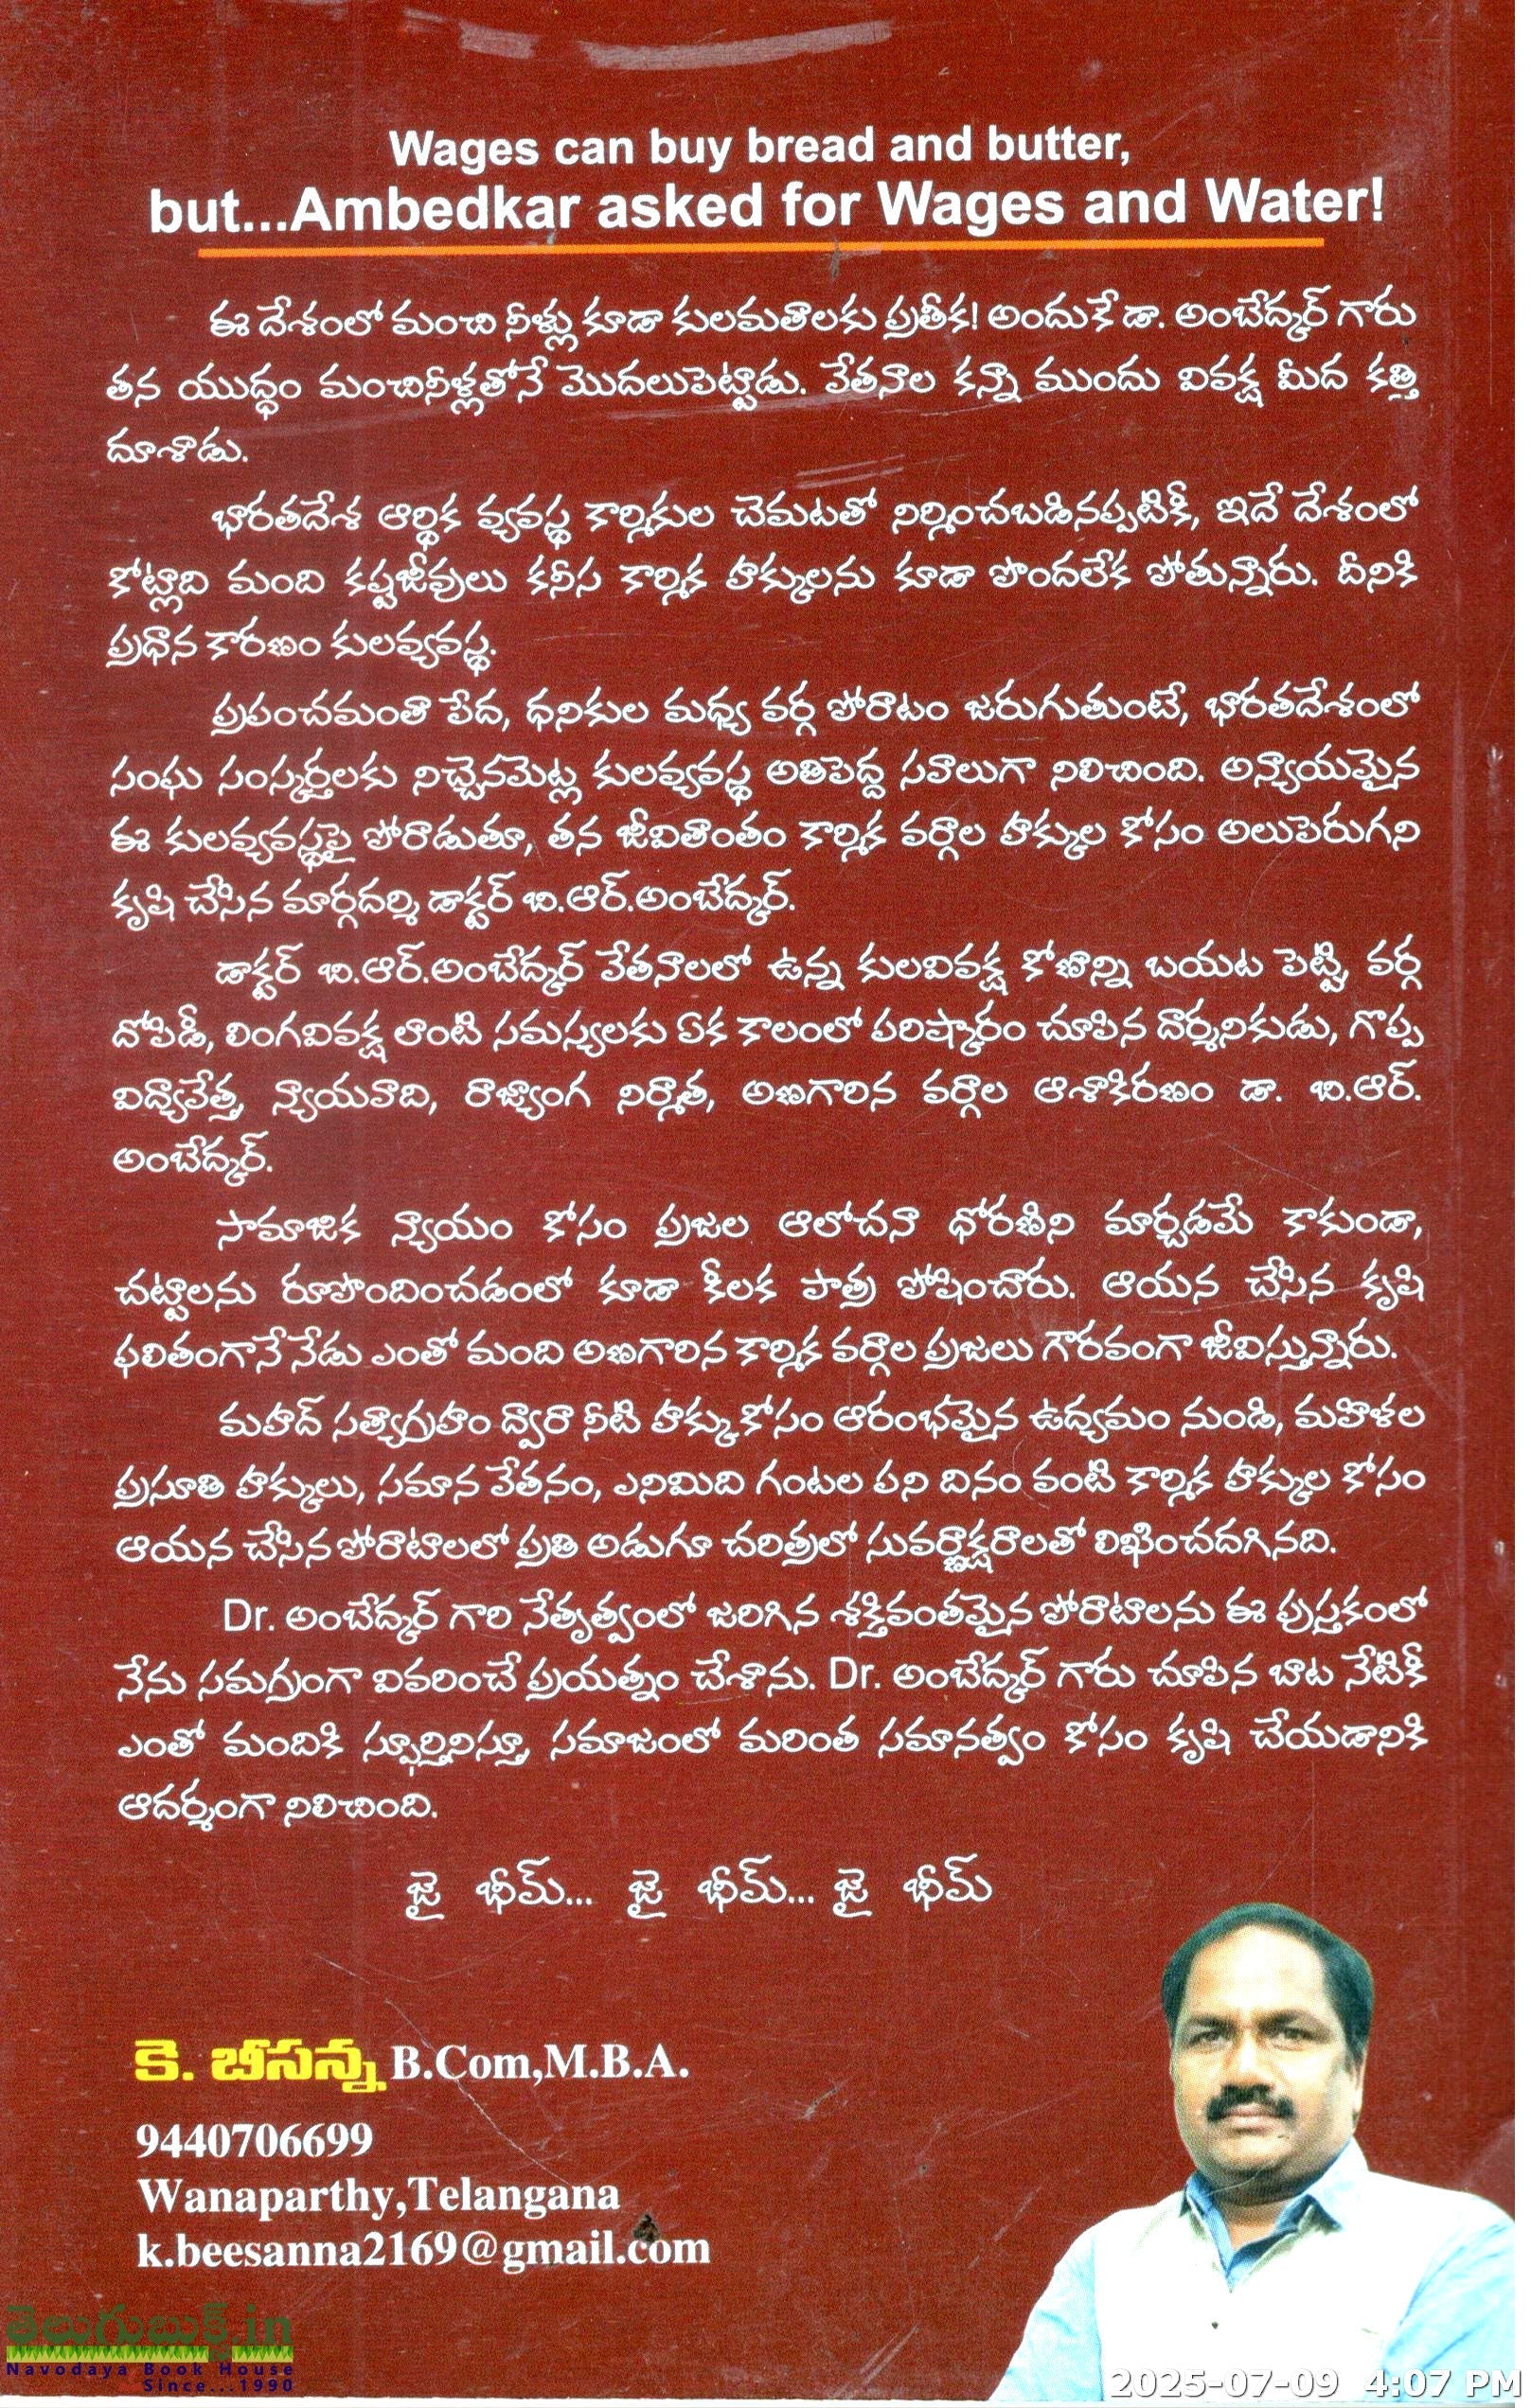 Wages can buy bread and butter,
but...Ambedkar asked for Wages and Water!
ఈ దేశంలో మంచి నీళ్లు కూడా కులమతాలకు ప్రతీక! అందుకే డా. అంబేద్కర్ గారు
తన యుద్ధం మంచినీళ్లతోనే మొదలుపెట్టాడు. వేతనాల కన్నా ముందు వివక్ష మీద కత్తి
దూశాడు.
భారతదేశ ఆర్థిక వ్యవస్థ కార్మికుల చెమటతో నిర్మించబడినప్పటికీ, ఇదే దేశంలో
కోట్లాది మంది కష్టజీవులు కనీస కార్మిక హక్కులను కూడా పొందలేక పోతున్నారు. దీనికి
ప్రధాన కారణం కులవ్యవస్థ.
ప్రపంచమంతా పేద, ధనికుల మధ్య వర్గ పోరాటం జరుగుతుంటే, భారతదేశంలో
సంఘ సంస్కర్తలకు నిచ్చెనమెట్ల కులవ్యవస్థ అతిపెద్ద సవాలుగా నిలిచింది. అన్యాయమైన
ఈ కులవ్యవస్థపై పోరాడుతూ, తన జీవితాంతం కార్మిక వర్గాల హక్కుల కోసం అలుపెరుగని
కృషి చేసిన మార్గదర్శి డాక్టర్ బి.ఆర్.అంబేద్కర్.
డాక్టర్ బి.ఆర్.అంబేద్కర్ వేతనాలలో ఉన్న కులవివక్ష కోణాన్ని బయట పెట్టి, వర్గ
దోపిడీ, లింగవివక్ష లాంటి సమస్యలకు ఏక కాలంలో పరిష్కారం చూపిన దార్శనికుడు, గొప్ప
విద్యావేత్త, న్యాయవాది, రాజ్యాంగ నిర్మాత, అణగారిన వర్గాల ఆశాకిరణం డా. బి.ఆర్.
అంబేద్కర్.
సామాజిక న్యాయం కోసం ప్రజల ఆలోచనా ధోరణిని మార్చడమే కాకుండా,
చట్టాలను రూపొందించడంలో కూడా కీలక పాత్ర పోషించారు. ఆయన చేసిన కృషి
ఫలితంగానే నేడు ఎంతో మంది అణగారిన కార్మిక వర్గాల ప్రజలు గౌరవంగా జీవిస్తున్నారు.
మహద్ సత్యాగ్రహం ద్వారా నీటి హక్కు కోసం ఆరంభమైన ఉద్యమం నుండి, మహిళల
ప్రసూతి హక్కులు, సమాన వేతనం, ఎనిమిది గంటల పని దినం వంటి కార్మిక హక్కుల కోసం
ఆయన చేసిన పోరాటాలలో ప్రతి అడుగూ చరిత్రలో సువర్ణాక్షరాలతో లిఖించదగినది.
Dr. అంబేద్కర్ గారి నేతృత్వంలో జరిగిన శక్తివంతమైన పోరాటాలను ఈ పుస్తకంలో
నేను సమగ్రంగా వివరించే ప్రయత్నం చేశాను. Dr. అంబేద్కర్ గారు చూపిన బాట నేటికీ
ఎంతో మందికి స్ఫూర్తినిస్తూ, సమాజంలో మరింత సమానత్వం కోసం కృషి చేయడానికి
ఆదర్శంగా నిలిచింది.
జై భీమ్... జై భీమ్... జై భీమ్
కె. బీసన్న B.Com,M.B.A.
9440706699
Wanaparthy,Telangana
k.beesanna2169@gmail.com
తెలుగుబుక్స్.in
Navodaya Book House
Since...1990
2025-07-09 4:07 PM